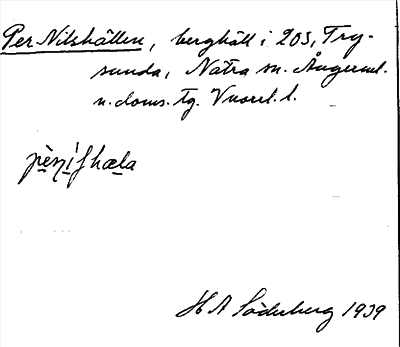 Per Nilshällen, berghäll i 203, Try-
sunda, Nätra sn. Ångerml.
n. doms. tg. Vnorrl. l.
H A Söderberg 1939